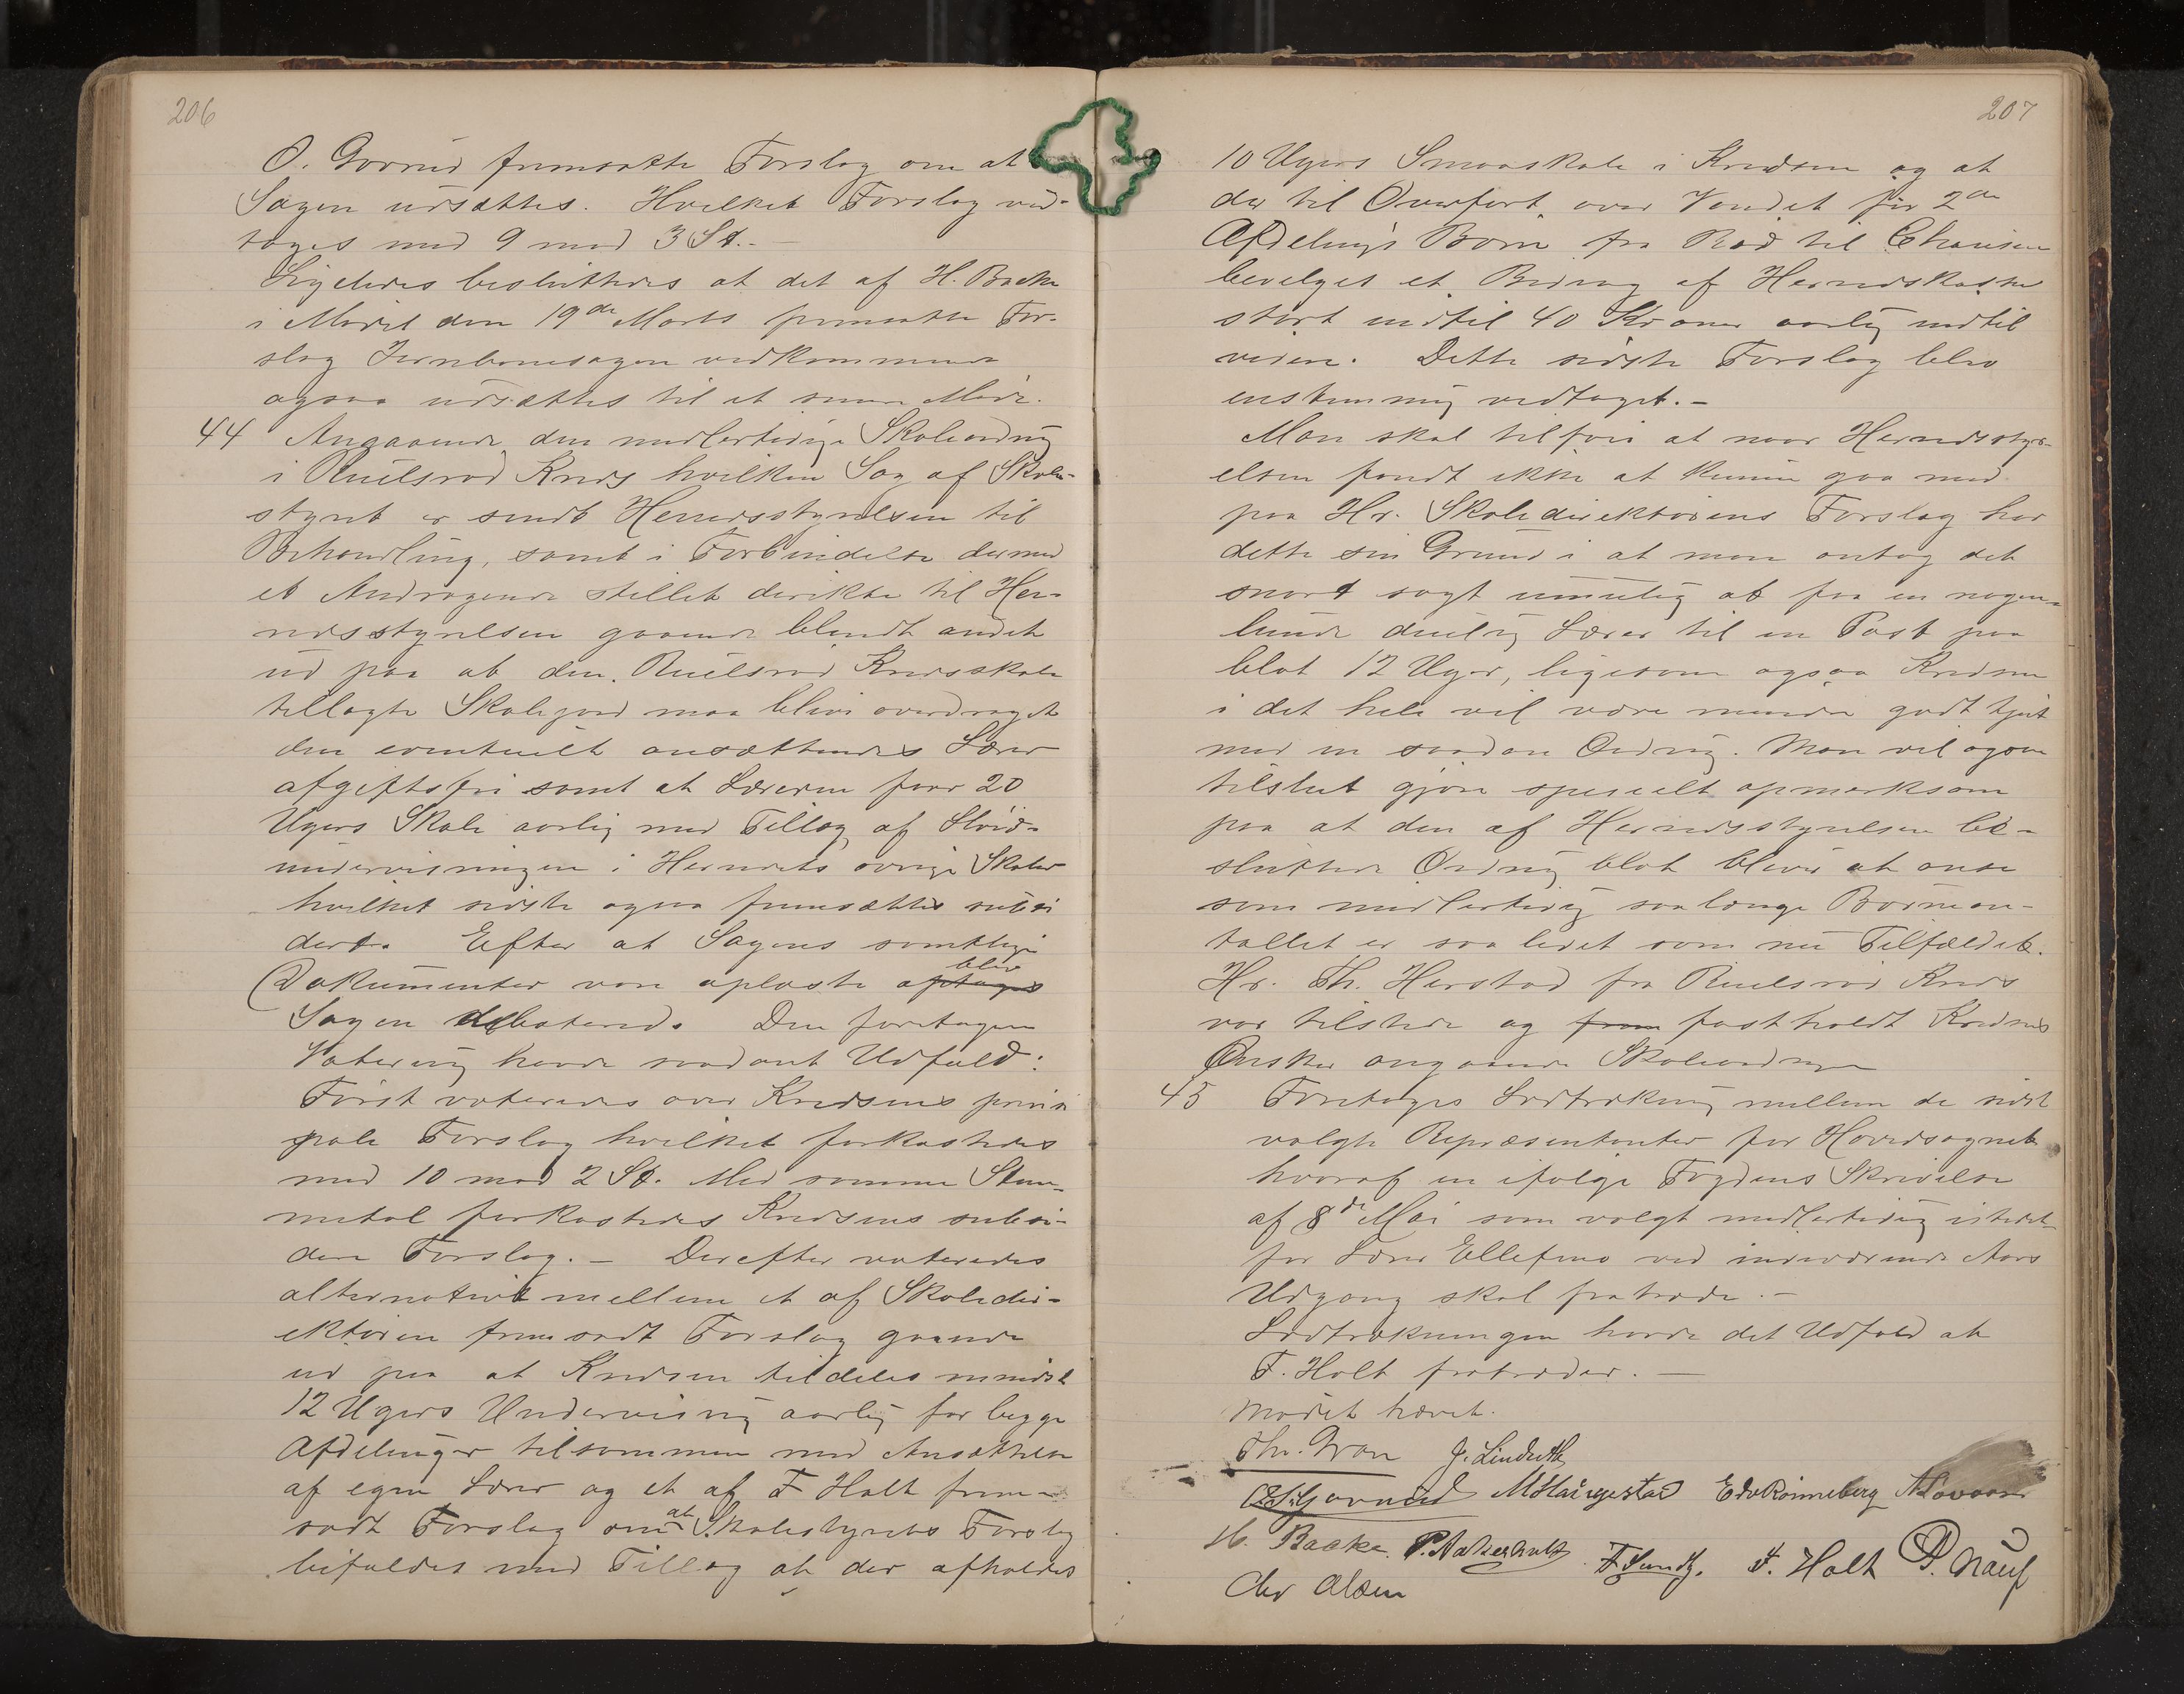 206
O. Gorrud fremsatte Forslag om at
Sagen udsættes. Hvilket Forslag ved-
toges med 9 mod 3 St. —
Ligeledes besluttedes at det af H. Backe
i Mødet den 19de Marts fremsatte For-
slag Jernbanesagen vedkommende
ogsaa udsættes til et senere Møde.
44 Angaaende den midlertidige Skoleordning
i Ruelsrød Kreds hvilken Sag af Skole-
styret er sendt Herredsstyrelsen til
Behandling, samt i Forbindelse dermed
et Andragende stillet direkte til Her-
redsstyrelsen gaaende blandt andet
ud paa at den Ruelsrød Kredsskole
tillagte Skolejord maa blive overdraget
den eventuelt ansættendes Lærer
afgiftsfri samt at Læreren faar 20
Ugers Skole aarlig med Tillæg af Sløid-
undervisningen i Herredets øvrige Skoler
hvilket sidste ogsaa fremsættes subsi
dert. Efter at Sagens samtlige
Dokumenter vare oplæste optoges blev
Sagen debatered. Den foretagne
Votering havde saadant Udfald:
Først voteredes over Kredsens prinsi
pale Forslag hvilket forkastedes
med 10 mod 2 St. Med samme Stem-
metal forkastedes Kredsens subsi-
dere Forslag. — Derefter voteredes
alternativt mellem et af Skoledir-
ektøren fremsadt Forslag gaaende
ud paa at Kredsen tildeles mindst
12 Ugers Undervisning aarlig for begge
Afdelinger tilsammen med Ansættelse
af egen Lærer og et af F Holt frem-
sadt Forslag om at Skolestyrets Forslag
bifaldes med Tillæg at der afholdes
207
10 Ugers Smaaskole i Kredsen og at
der til Overført over Vandet for 2den
Afdelings Børn fra Rød til Chausen
bevilges et Bidrag af Herredskassen
stort indtil 40 Kroner aarlig indtil
videre. Dette sidste Forslag blev
enstemmig vedtaget. —
Man skal tilføie at naar Herredsstyr-
elsen fandt ikke at kunne gaa med
paa Hr. Skoledirektørens Forslag har
dette sin Grund i at man antog det
snart sagt umulig at faa en nogen-
lunde duelig Lærer til en Post paa
blot 12 Uger, ligesom ogsaa Kredsen
i det hele vil være mindre godt tjent
med en saadan Ordning. Man vil ogsaa
tilslut gjøre specielt opmerksom
paa at den af Herredsstyrelsen be-
sluttede Ordning blot bliver at anse
som midlertidig saalænge Børnean-
tallet er saa lidet som nu Tilfældet.
Hr. Th. Herstad fra Ruelsrød Kreds
var tilstede og frem fastholdt Kredsens
Ønsker angaaende Skoleordningen
45 Foretoges Lodtrækning mellem de sidst
valgte Repræsentanter for Hovedsognet
hvoraf en ifølge Fogdens Skrivelse
af 8de Mai som valgt midlertidig istedet-
for Lærer Ellefsens ved indeværende Aars
Udgang skal fratræde. —
Lodtrækningen havde det Udfald at
F. Holt fratræder. —
Mødet hævet.
Thr. Gran J. Linduth
MHaugestad EdvRønneberg
H. Backe. FLundh. F. Holt P. Nauf
Chr Olsen